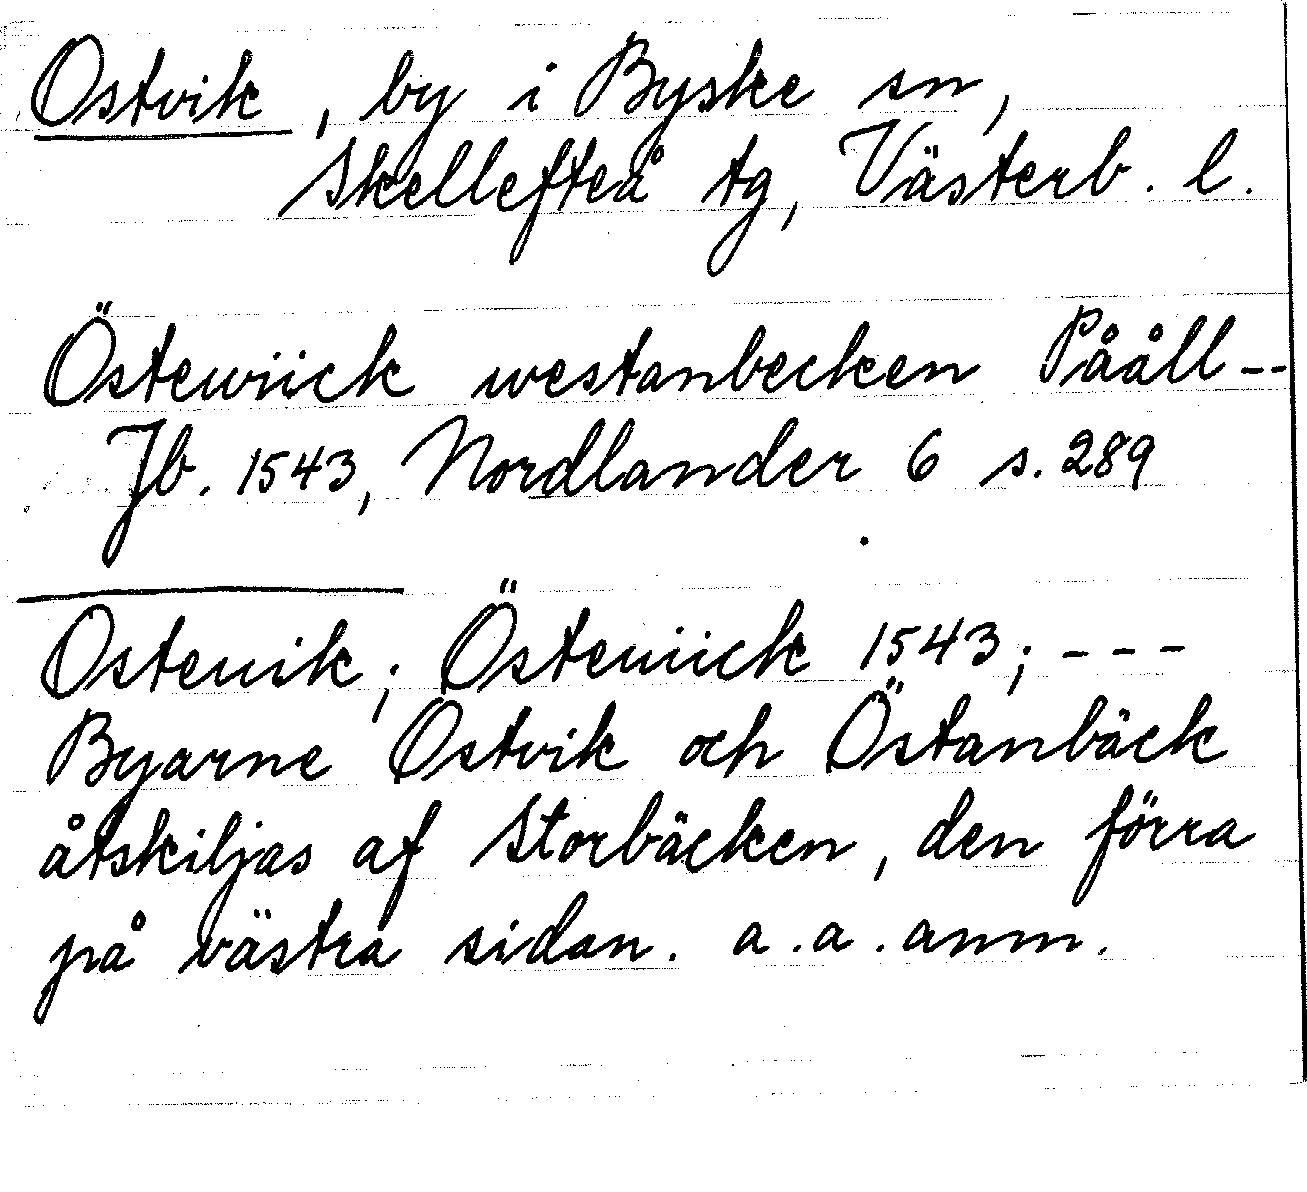 Ostvik, by i Byske sn,
Skellefteå tg, Västerb. l.
Östewiick westanbecken Pååll--
Jb. 1543, Nordlander 6 s. 289
Ostenik; Östeniick 1543; ---
Byarne Ostvik och Östanbäck
åtskiljas af Storbäcken, den förra
på västra sidan. a.a. anm.